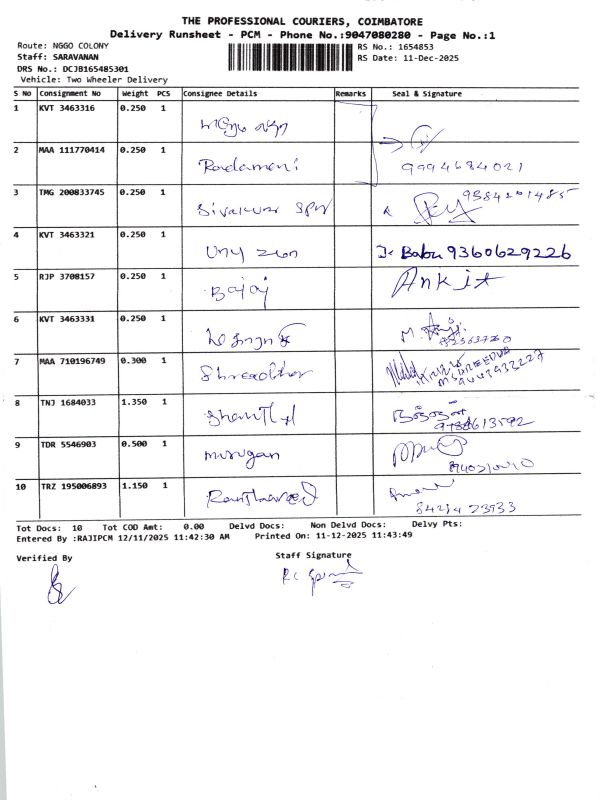 THE PROFESSIONAL COURIERS, COIMBATORE
Delivery Runsheet - PCM - Phone No.:9047080280 - Page No.:1
Route: NGGO COLONY RS No.: 1654853
Staff: SARAVANAN RS Date: 11-Dec-2025
DRS No.: DCJB165485301
Vehicle: Two Wheeler Delivery
S No Consignment No Weight PCS Consignee Details Remarks Seal & Signature
1 KVT 3463316 0.250 1
2 MAA 111770414 0.250 1 Radamani 9994684021
3 TMG 200833745 0.250 1 Sivakumar 9384201485
4 KVT 3463321 0.250 1 Babu 9360629226
5 RJP 3708157 0.250 1 Bajaj Ankit
6 KVT 3463331 0.250 1 M.
7 MAA 710196749 0.300 1 Shreedhar
8 TNJ 1684033 1.350 1
9 TDR 5546903 0.500 1 murugan
10 TRZ 195006893 1.150 1
Tot Docs: 10 Tot COD Amt: 0.00 Delvd Docs: Non Delvd Docs: Delvy Pts:
Entered By :RAJIPCM 12/11/2025 11:42:30 AM Printed On: 11-12-2025 11:43:49
Verified By Staff Signature